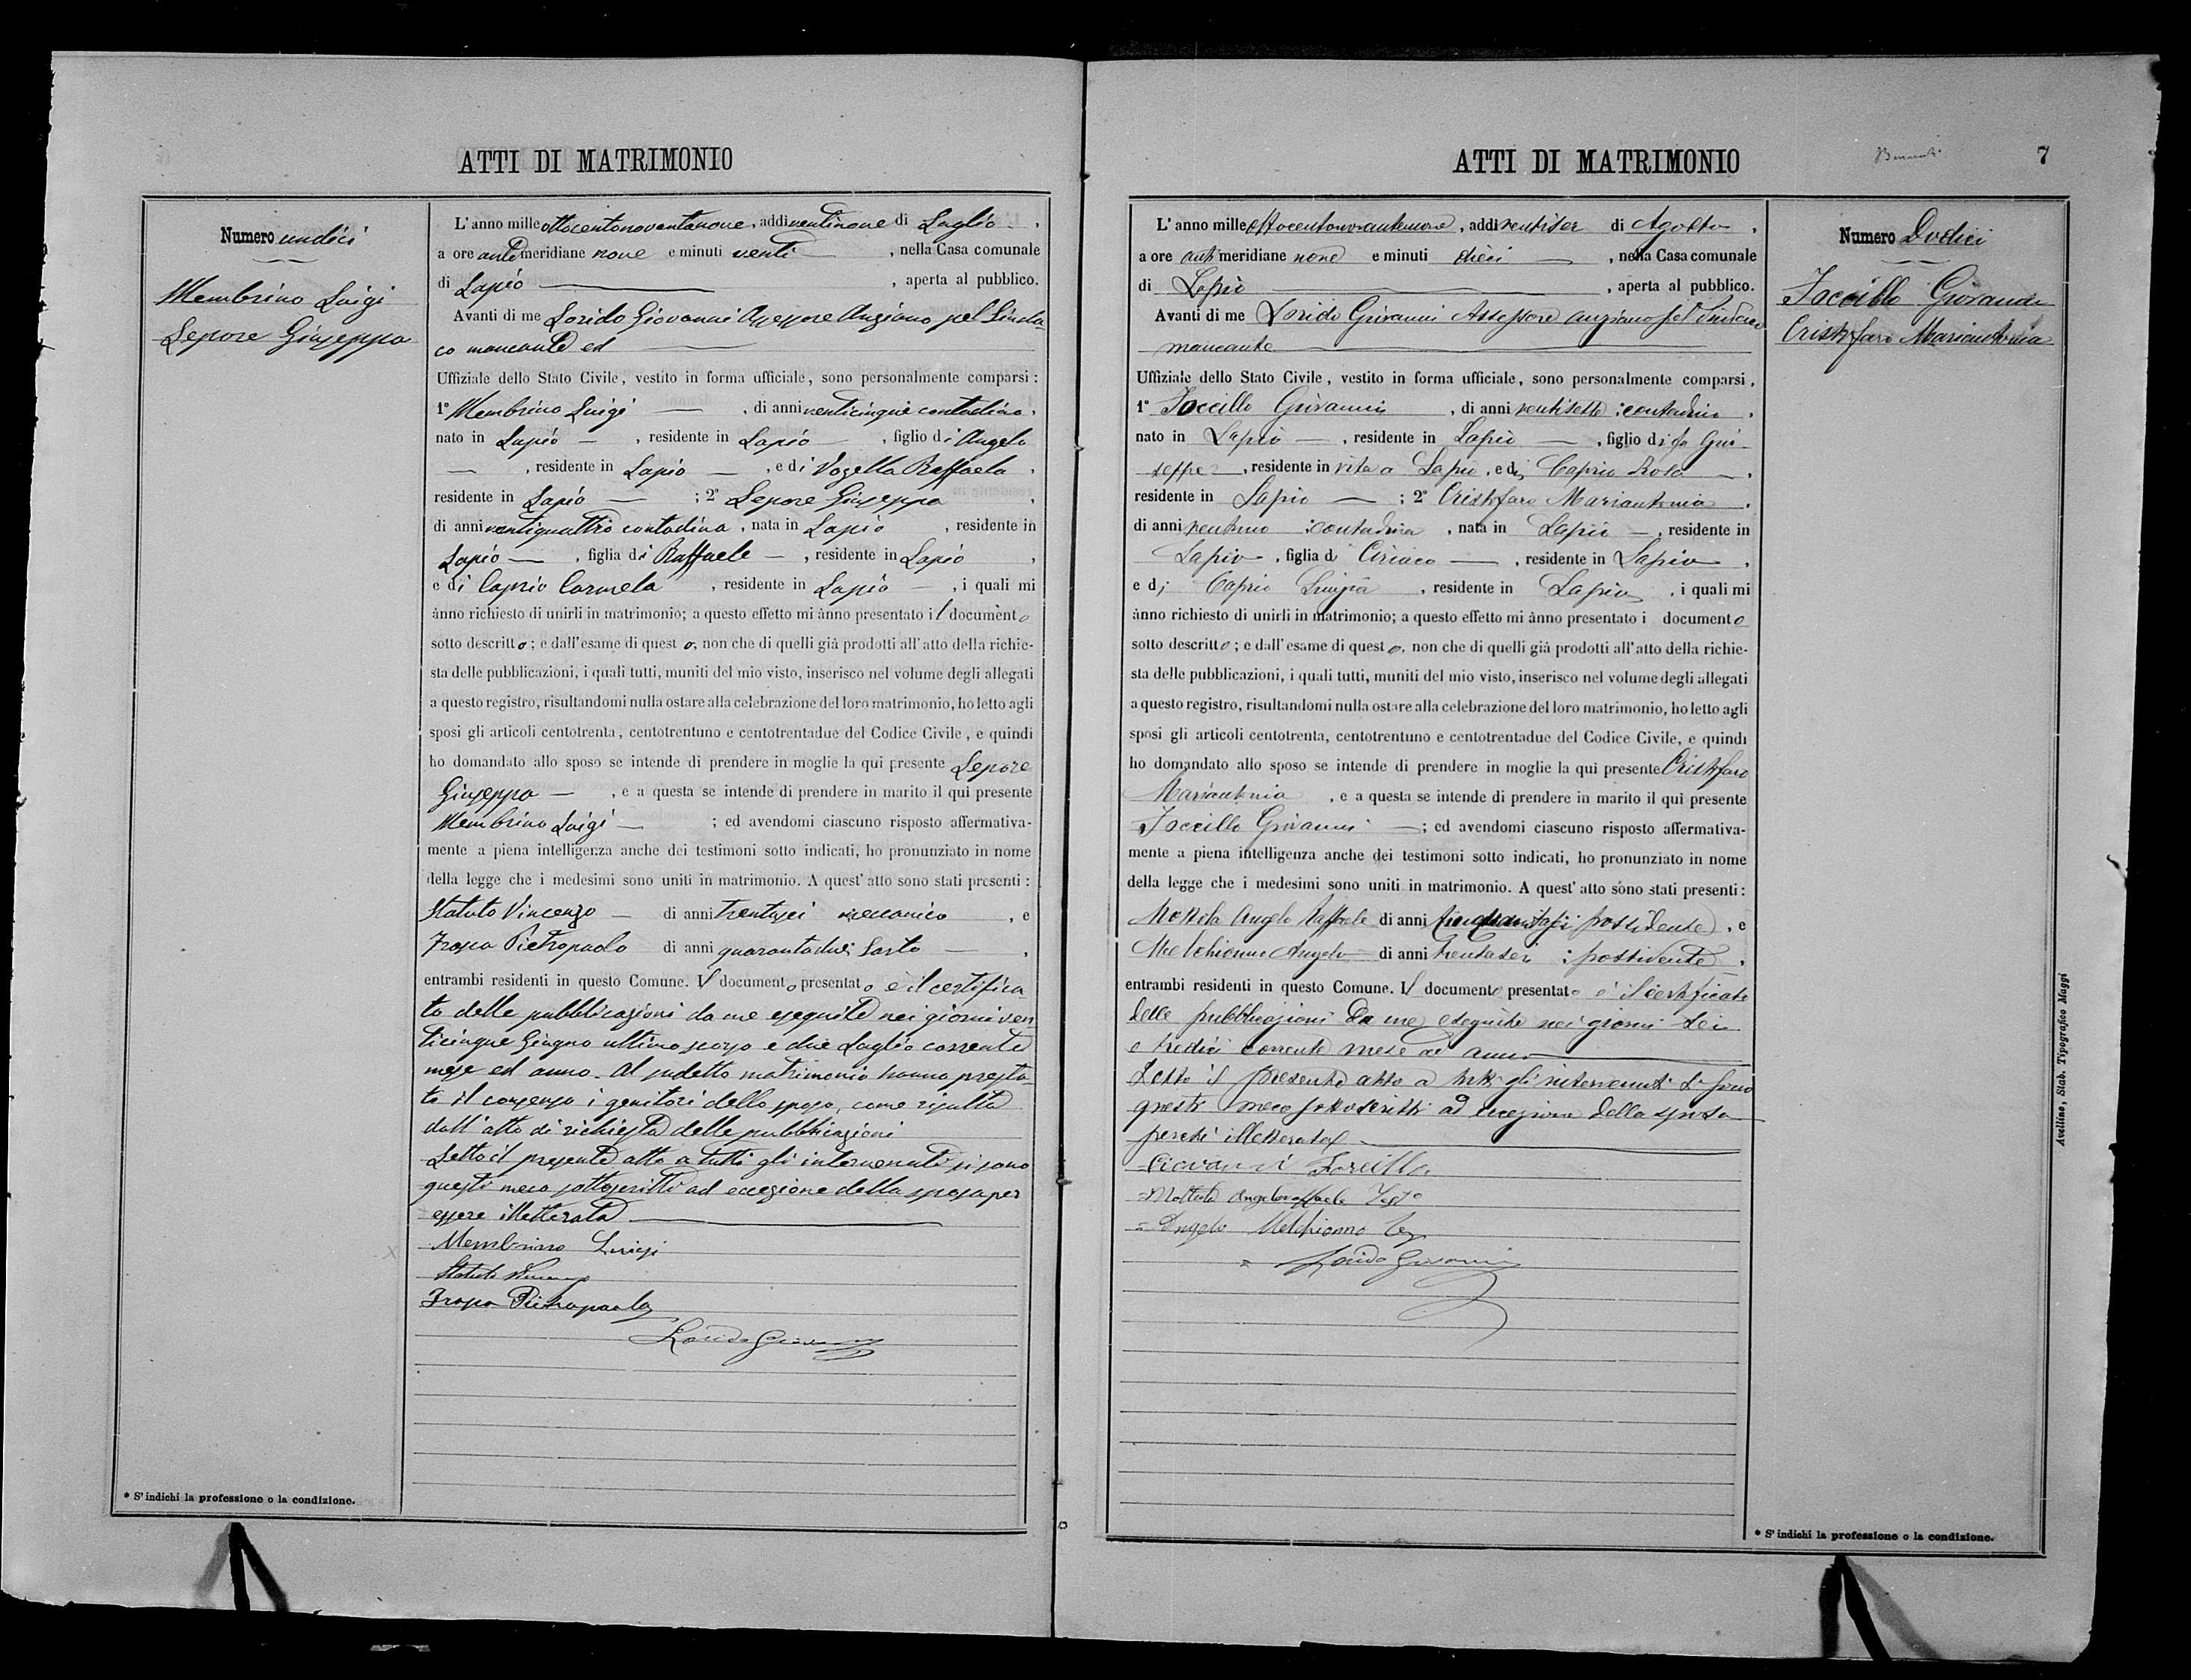 ATTI DI MATRIMONIO
Numero undici
Membrino Luigi
Lepore Giuseppa
L'anno mille ottocentonovantanove, addì ventinove di Luglio,
a ore anti meridiane nove e minuti venti, nella Casa comunale
di Lapio, aperta al pubblico.
Avanti di me Lorido Giovanni Assessore Anziano pel Sinda
co mancante ed
Uffiziale dello Stato Civile, vestito in forma ufficiale, sono personalmente comparsi:
1° Membrino Luigi, di anni venticinque contadino,
nato in Lapio, residente in Lapio, figlio di Angelo
, residente in Lapio, e di Vozella Raffaela,
residente in Lapio; 2° Lepore Giuseppa,
di anni ventiquattro contadina, nata in Lapio, residente in
Lapio, figlia di Raffaele, residente in Lapio,
e di Caprio Carmela, residente in Lapio, i quali mi
ànno richiesto di unirli in matrimonio; a questo effetto mi ànno presentato il documento
sotto descritto; e dall'esame di questo, non che di quelli già prodotti all'atto della richie-
sta delle pubblicazioni, i quali tutti, muniti del mio visto, inserisco nel volume degli allegati
a questo registro, risultandomi nulla ostare alla celebrazione del loro matrimonio, ho letto agli
sposi gli articoli centotrenta, centotrentuno e centotrentadue del Codice Civile, e quindi
ho domandato allo sposo se intende di prendere in moglie la qui presente Lepore
Giuseppa, e a questa se intende di prendere in marito il qui presente
Membrino Luigi; ed avendomi ciascuno risposto affermativa-
mente a piena intelligenza anche dei testimoni sotto indicati, ho pronunziato in nome
della legge che i medesimi sono uniti in matrimonio. A quest'atto sono stati presenti:
Statuto Vincenzo di anni trentasei meccanico, e
Frasca Pietropaolo di anni quarantadue Sarto,
entrambi residenti in questo Comune. Il documento presentato è il certifica
to delle pubblicazioni da me eseguite nei giorni ven
ticinque Giugno ultimo scorso e due Luglio corrente
mese ed anno. Al sudetto matrimonio hanno presta
to il consenso i genitori dello sposo, come risulta
dall'atto di richiesta delle pubblicazioni
Letto il presente atto a tutti gli intervenuti si sono
questi meco sottoscritti ad eccezione della sposa per
essere illetterata
Membrino Luigi
Statuto Vincenzo
Frasca Pietropaolo
Lorido Giovanni
* S'indichi la professione o la condizione.
ATTI DI MATRIMONIO
7
Numero Dodici
Joccillo Giovanni
Cristofaro Mariantonia
L'anno mille ottocentonovantanove, addì ventisei di Agosto,
a ore anti meridiane nove e minuti dieci, nella Casa comunale
di Lapio, aperta al pubblico.
Avanti di me Lorido Giovanni Assessore anziano pel Sindaco
mancante
Uffiziale dello Stato Civile, vestito in forma ufficiale, sono personalmente comparsi,
1° Joccillo Giovanni, di anni ventisette contadino,
nato in Lapio, residente in Lapio, figlio di fu Giu
seppe, residente in vita a Lapio, e di Caprio Rosa,
residente in Lapio; 2° Cristofaro Mariantonia,
di anni ventuno contadina, nata in Lapio, residente in
Lapio, figlia di Ciriaco, residente in Lapio,
e di Caprio Luigia, residente in Lapio, i quali mi
ànno richiesto di unirli in matrimonio; a questo effetto mi ànno presentato i documento
sotto descritto; e dall'esame di questo, non che di quelli già prodotti all'atto della richie-
sta delle pubblicazioni, i quali tutti, muniti del mio visto, inserisco nel volume degli allegati
a questo registro, risultandomi nulla ostare alla celebrazione del loro matrimonio, ho letto agli
sposi gli articoli centotrenta, centotrentuno e centotrentadue del Codice Civile, e quindi
ho domandato allo sposo se intende di prendere in moglie la qui presente Cristofaro
Mariantonia, e a questa se intende di prendere in marito il qui presente
Joccillo Giovanni; ed avendomi ciascuno risposto affermativa-
mente a piena intelligenza anche dei testimoni sotto indicati, ho pronunziato in nome
della legge che i medesimi sono uniti in matrimonio. A quest'atto sono stati presenti:
Mottola Angelo Raffaele di anni possidente, e
Melchionno Angelo di anni trentasei possidente,
entrambi residenti in questo Comune. Il documento presentato è il certificato
delle pubblicazioni da me eseguite nei giorni sei
e tredici corrente mese ed anno
Letto il presente atto a tutti gli intervenuti si sono
questi meco sottoscritti ad eccezione della sposa
perché illetterata
Giovanni Joccillo
Mottola Angeloraffaele Testo
Angelo Melchionno Tes
Lorido Giovanni
* S'indichi la professione o la condizione.
Avellino, Stab. Tipografico Maggi